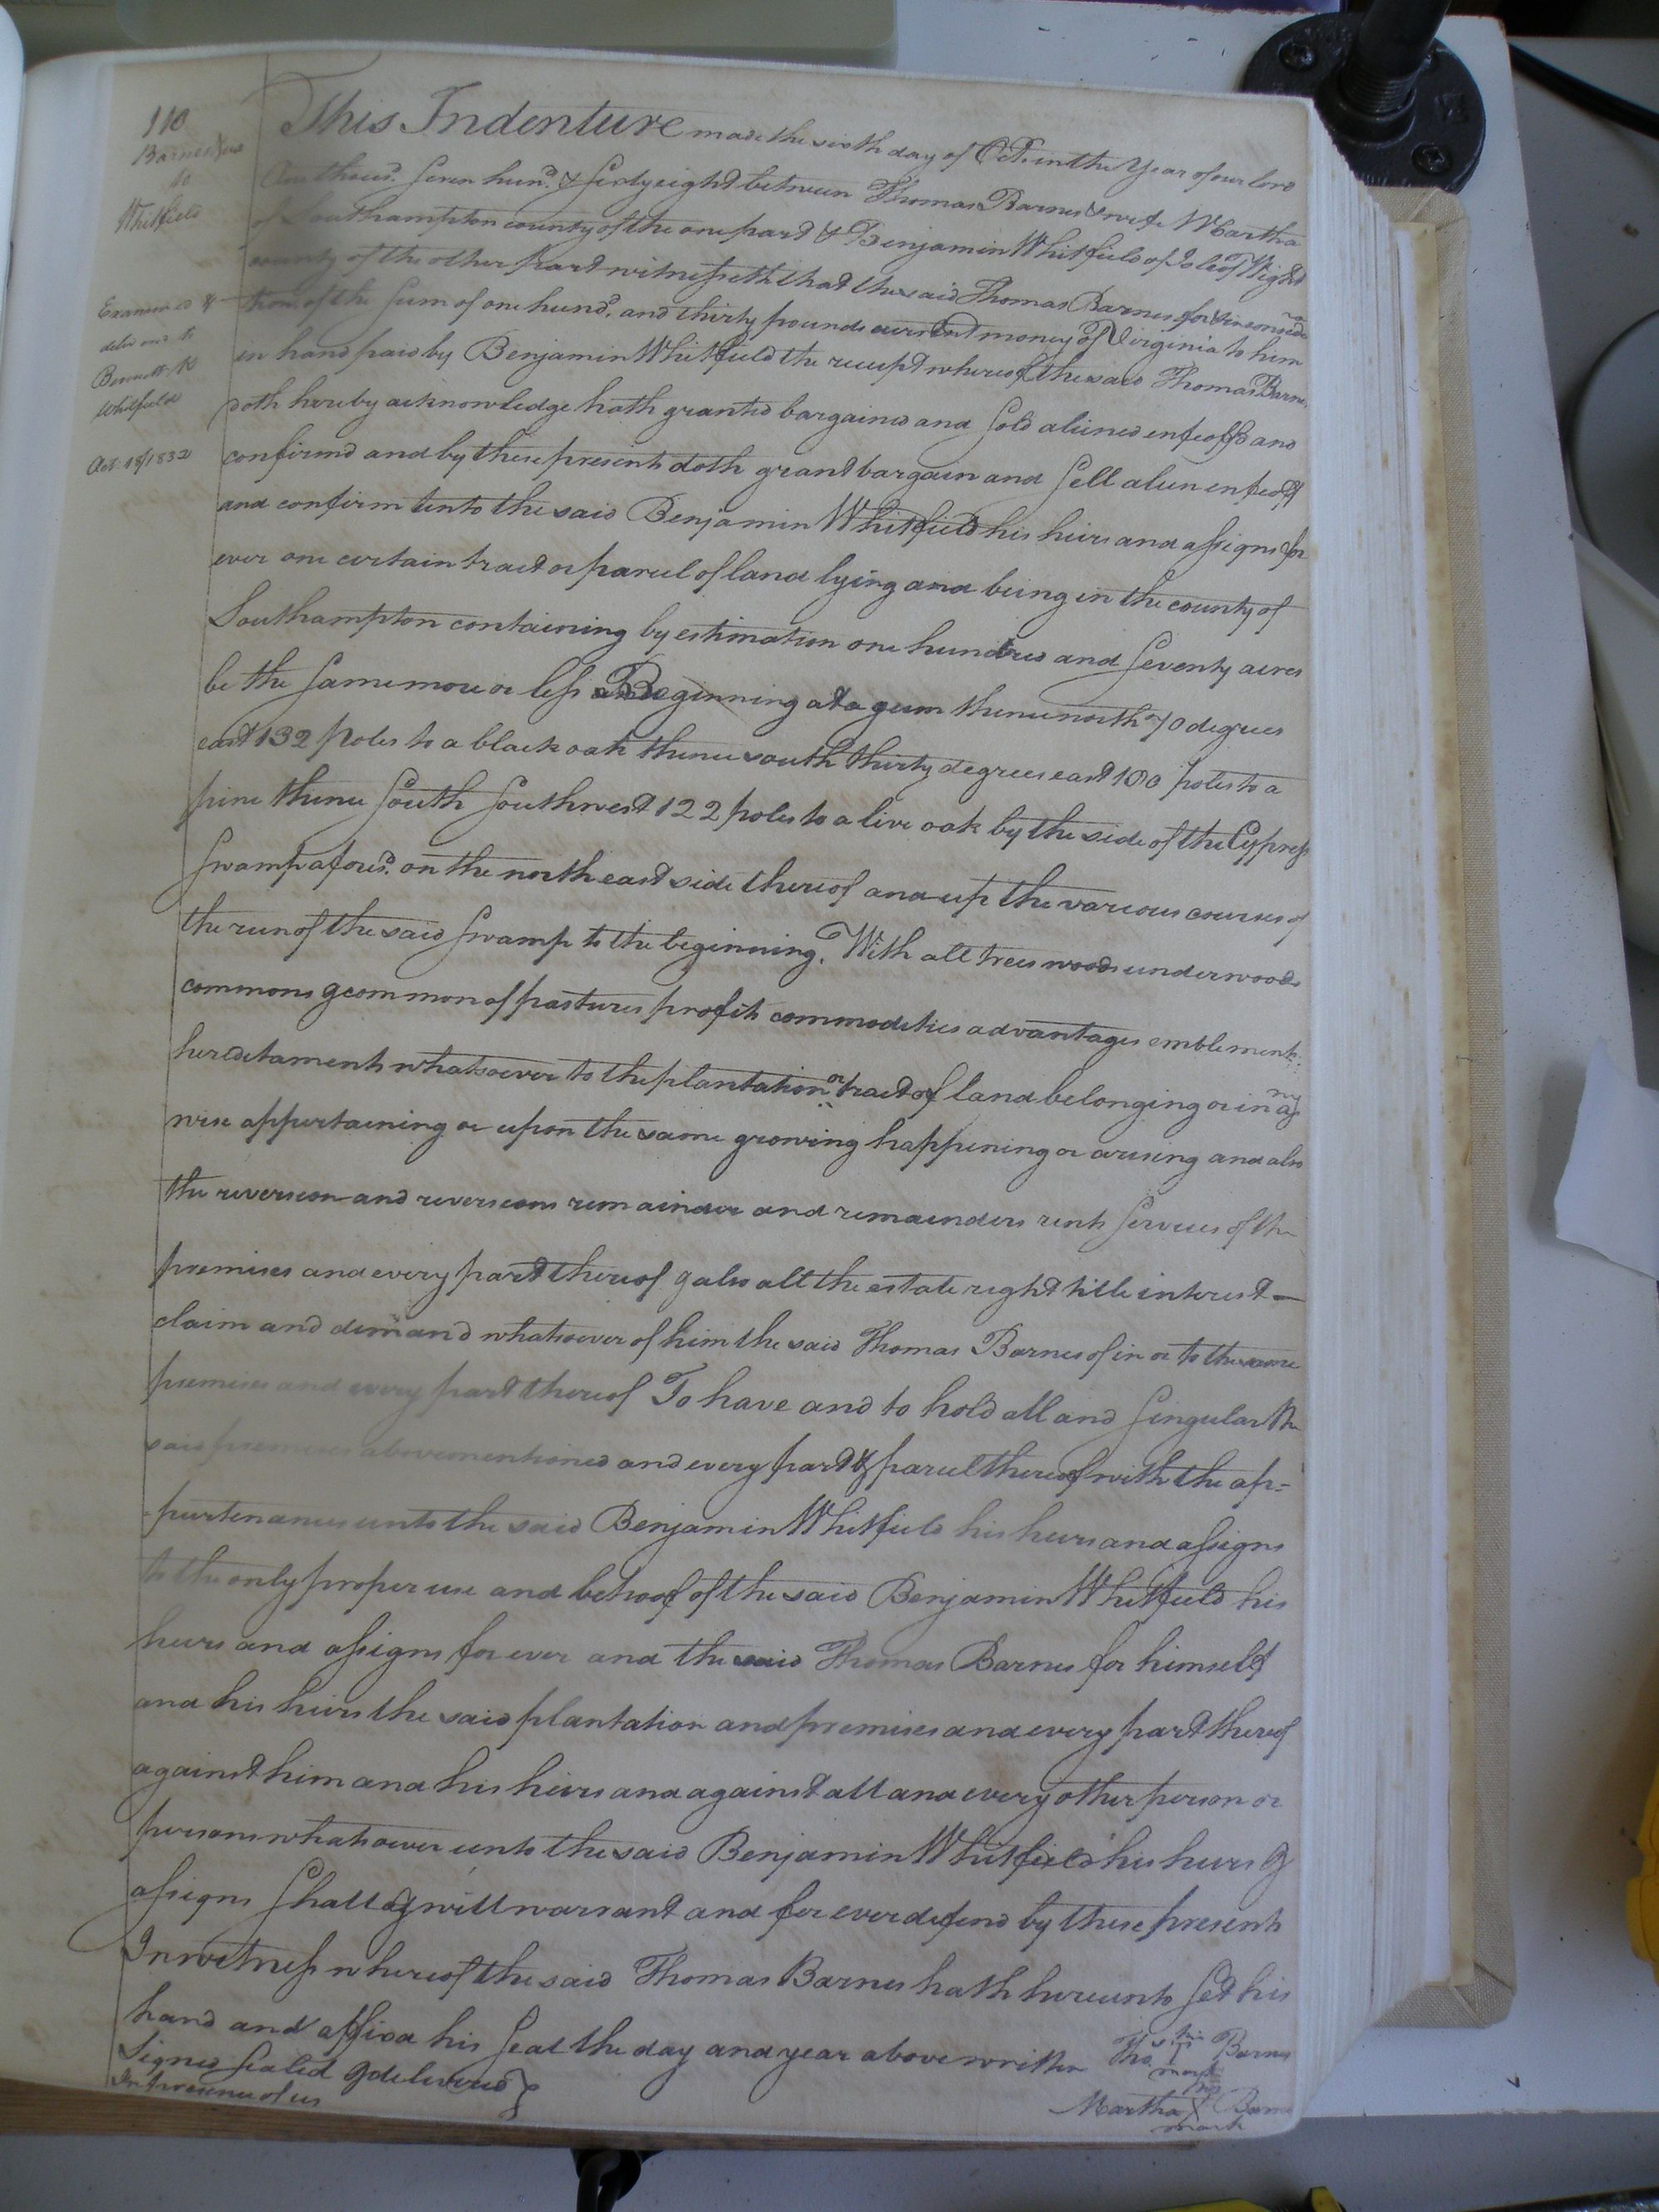 110
Barnes & ux
to
Whitfield
Examined &
deliv'd to
Bennett
Whitfield
Oct. 18/1832
This Indenture made the sixth day of Oct. in the Year of our lord
One thous.d Seven hun.d & Sixty eight between Thomas Barnes & wife Martha
of Southampton county of the one part & Benjamin Whitfield of Isle of Wight
county of the other part witnesseth that the said Thomas Barnes for & in considera
tion of the Sum of one hund.d and thirty pounds current money of Virginia to him
in hand paid by Benjamin Whitfield the receipt whereof the said Thomas Barnes
doth hereby acknowledge hath granted bargained and Sold aliened enfeoff'd and
confirm'd and by these presents doth grant bargain and Sell alien enfeoff
and confirm unto the said Benjamin Whitfield his heirs and assigns for
ever one certain tract or parcel of land lying and being in the county of
Southampton containing by estimation one hundred and Seventy acres
be the Same more or less Beginning at a gum thence north 70 degrees
east 132 poles to a black oak thence south thirty degrees east 100 poles to a
pine thence South Southwest 122 poles to a live oak by the side of the Cypress
Swamp afores.d on the north east side thereof and up the various courses of
the run of the said Swamp to the beginning. With all trees woods underwoods
commons & common of pastures profits commodities advantages emblements
hereditaments whatsoever to the plantation or tract of land belonging or in any
wise appertaining or upon the same growing happening or arising and also
the reversion and reversions remainder and remainders rents Services of the
premises and every part thereof & also all the estate right title interest —
claim and demand whatsoever of him the said Thomas Barnes of in or to the same
premises and every part thereof To have and to hold all and Singular the
said premises abovementioned and every part & parcel thereof with the ap=
=purtenances unto the said Benjamin Whitfield his heirs and assigns
to the only proper use and behoof of the said Benjamin Whitfield his
heirs and assigns for ever and the said Thomas Barnes for himself
and his heirs the said plantation and premises and every part thereof
against him and his heirs and against all and every other person or
persons whatsoever unto the said Benjamin Whitfield his heirs &
assigns Shall & will warrant and for ever defend by these presents
In witness whereof the said Thomas Barnes hath hereunto Set his
hand and affixd his Seal the day and year above written Tho. his Barnes
mark
Signed Sealed & delivered }
In presence of us
Martha X Barnes
mark